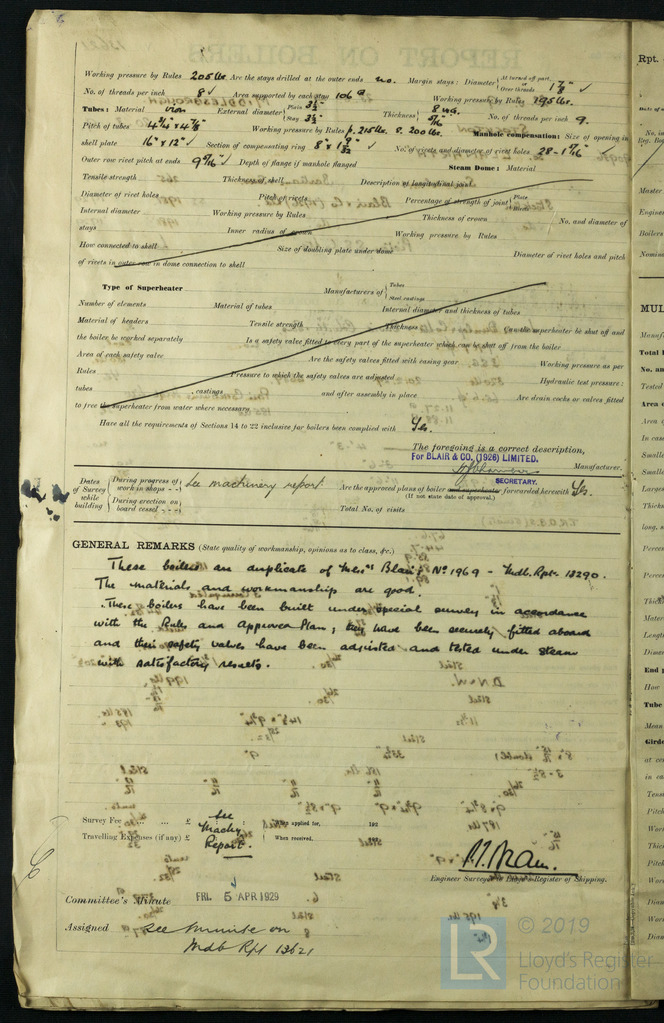 Working pressure by Rules 205 lbs. Are the stays drilled at the outer ends no. Margin stays: Diameter { At turned off part, or Over threads 1 7/8" ✓
No. of threads per inch 8 ✓ Area supported by each stay 106 Working pressure by Rules 195 lbs.
Tubes: Material iron External diameter { Plain 3½" Stay 3½" Thickness { 8 w.g. 5/16" No. of threads per inch 9.
Pitch of tubes 4¾" x 4 7/8" Working pressure by Rules p. 215 lbs. s. 200 lbs. Manhole compensation: Size of opening in
shell plate 16" x 12" ✓ Section of compensating ring 8" x 1 9/32" ✓ No. of rivets and diameter of rivet holes 28 - 1 7/16" ✓
Outer row rivet pitch at ends 9 9/16" ✓ Depth of flange if manhole flanged Steam Dome: Material
Tensile strength Thickness of shell Description of longitudinal joint
Diameter of rivet holes Pitch of rivets Percentage of strength of joint { Plate Rivets
Internal diameter Working pressure by Rules Thickness of crown No. and diameter of
stays Inner radius of crown Working pressure by Rules
How connected to shell Size of doubling plate under dome Diameter of rivet holes and pitch
of rivets in outer row in dome connection to shell
Type of Superheater Manufacturers of { Tubes Steel castings
Number of elements Material of tubes Internal diameter and thickness of tubes
Material of headers Tensile strength Thickness Can the superheater be shut off and
the boiler be worked separately Is a safety valve fitted to every part of the superheater which can be shut off from the boiler
Area of each safety valve Are the safety valves fitted with easing gear Working pressure as per
Rules Pressure to which the safety valves are adjusted Hydraulic test pressure:
tubes castings and after assembly in place Are drain cocks or valves fitted
to free the superheater from water where necessary
Have all the requirements of Sections 14 to 22 inclusive for boilers been complied with Yes.
The foregoing is a correct description,
For BLAIR & CO. (1926) LIMITED.
Manufacturer.
SECRETARY.
Dates of Survey while building { During progress of work in shops - - See machinery report Are the approved plans of boiler and superheater forwarded herewith Yes.
(If not state date of approval.)
During erection on board vessel - - - Total No. of visits
GENERAL REMARKS (State quality of workmanship, opinions as to class, &c.)
These boilers are duplicate of Messrs Blair's No 1969 - Mdb. Rpt. 13290.
The materials and workmanship are good.
These boilers have been built under special survey in accordance
with the Rules and Approved Plan; they have been securely fitted aboard
and their safety valves have been adjusted and tested under steam
with satisfactory results.
Survey Fee ... ... £ See When applied for, 192
Travelling Expenses (if any) £ Machy Report. When received,
Engineer Surveyor to Lloyd's Register of Shipping.
Committee's Minute FRI. 5 APR 1929
Assigned See minute on
Mdb Rpt 13621
© 2019
LR
Lloyd's Register
Foundation
Rpt.
Master
Engine
Boilers
Nomin
MUL
Manuf
Total
No. an
Tested
Area o
Area o
In case
Smalle
Smalle
Larges
Thickn
long. s
Materi
Length
Dimen
End p
How
Tube
Girde
at ce
in ca
Tensi
Pitch
Work
Diam
Worki
Diam